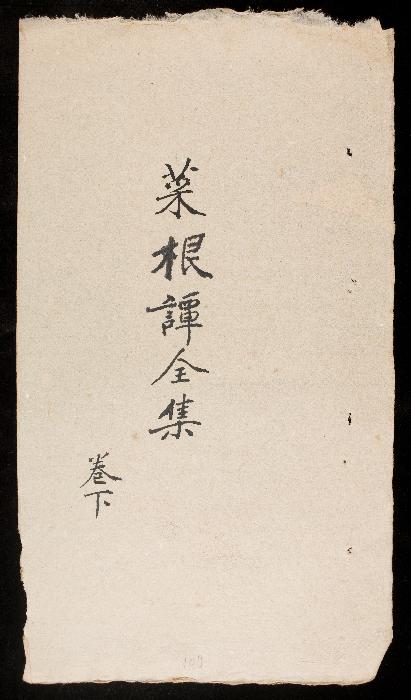 菜根譚全集
卷下